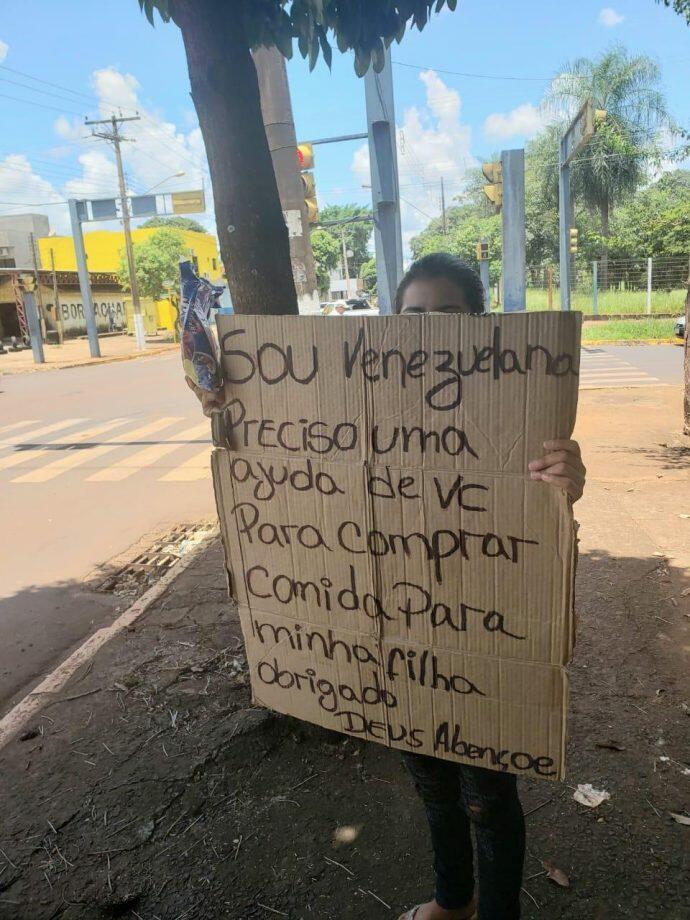 Sou Venezuelana
Preciso uma
ajuda de vc
Para comprar
comida Para
minha filha
obrigado
DEUS Abençoe
BORRACHA